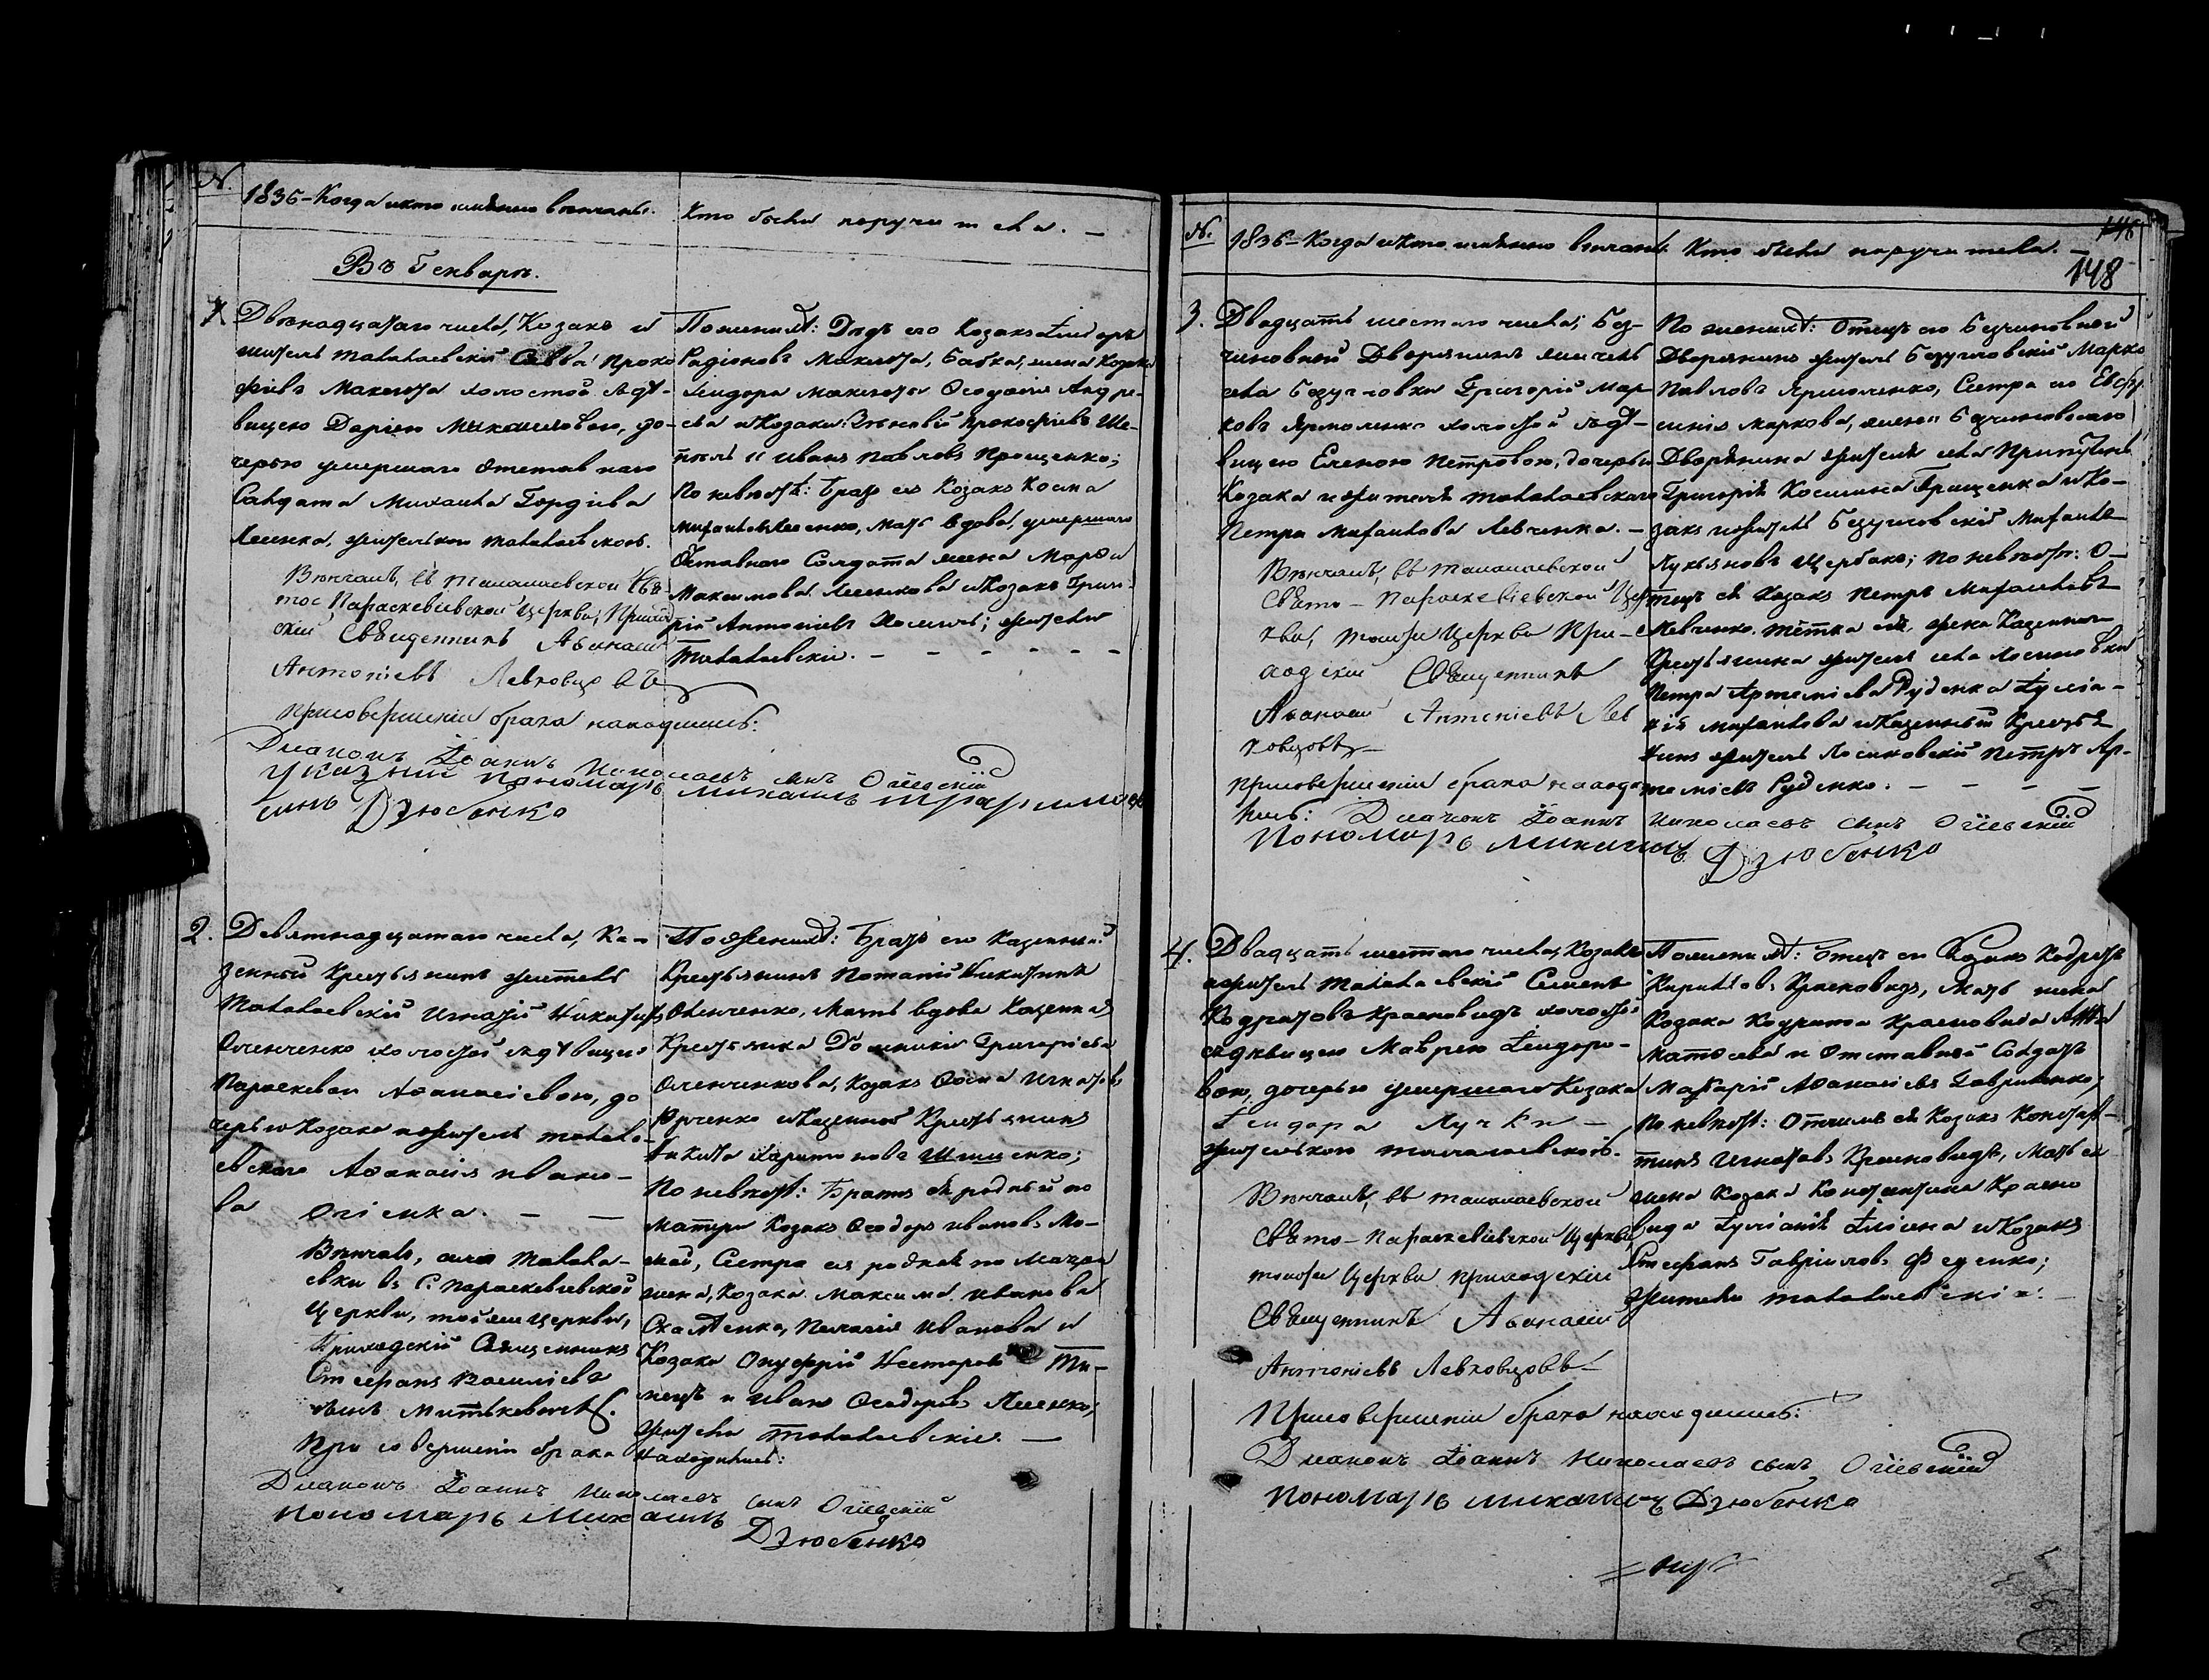 №.
1836 – Когда и кто именно венчанъ.
Кто были поручители. –
Въ Генварѣ.
1.
Двѣнадцатаго числа, Козакъ и
житель Талалаевскій Савва Проко
фіевъ Макитта холостой съ дѣ-
вицею Дарією Михайловою, до-
черью умершаго Отставнаго
Салдата Михаила Гордіева
Лисенка, жителькою Талалаевскою.
Вѣнчалъ, въ Талалаевской Свя
то Параскевіевской Церкви, Приход
скій Священникъ Аѳанасій
Антоніевъ Левковцовъ
При совершеніи брака находились:
Діаконъ Іоаннъ Николаевъ сынъ Огіевскій
Указный Пономарь Михаилъ
сынъ Дзюбенко
По женихѣ: Дѣдъ его Козакъ Ісидоръ
Радіоновъ Бабка, жена Козака
Ісидора Ѳеодосія Андре-
ева и Козаки: Зѣновій Прокофіевъ Ше-
и Иванъ Павловъ Прощенко;
По невѣстѣ: Братъ ея Козакъ Косма
Михайловъ Лисенко, Мать вдова, умершаго
Отставнаго Солдата жена Марѳа
Максимова Лисенкова и Козакъ Григо-
рій Антоніевъ жители
Талалаевскіе. – – – – – –
2.
Девятнадцатаго числа, Ка-
зенный Крестьянинъ житель
Талалаевскій Игнатій Никитинъ
Оленченко холостой съ дѣвицею
Параскевою Аѳанасіевою, до
черью Козака и жителя Талала-
евскаго Аѳанасія Ивано-
ва Огіенка. – –
Вѣнчалъ, села Талала-
евки въ С. Параскевіевской
Церкви, той же Церкви,
Приходскій Священникъ
Стефанъ Василіевъ
сынъ Митькевичъ.
При совершеніи брака находились:
Діаконъ Іоаннъ Николаевъ сынъ Огіевскій
Пономарь Михаилъ Дзюбенко
По женихѣ: Братъ его Казенный
Крестьянинъ Потапій Никитинъ
Оленченко, Мать вдова Казеннаго
Крестьянина Домникія Григоріева
Оленченкова, Козакъ Ѳома Игнатовъ
Юрченко и Казенной Крестьянинъ
Никита Харитоновъ
По невѣстѣ: Братъ ея родный по
матери Козакъ Ѳеодоръ Ивановъ
Сестра ея родная по Матери
жена, Козака Максима Иванова
Пелагія Иванова и
Козаки Онуфрій Несторовъ
и Иванъ Ѳеодоровъ Лисенко,
жители Талалаевскіе. –
№.
1836 – Когда и кто именно венчанъ.
Кто были поручители. –
148
3.
Двадцать шестаго числа; Без-
чиновный Дворянинъ житель
села Безугловки Григорій Мар
ковъ Ярмоленко холостой съ дѣ-
вицею Еленою Петровою, дочерью
Козака и жителя Талалаевскаго
Петра Михайлова Левченка. –
Вѣнчалъ, въ Талалаевской
Свято – Параскевіевской Цер
кви, той же Церкви При-
ходскій Священникъ
Аѳанасій Антоніевъ Лев
ковцовъ –
При совершеніи брака находи
лись: Діаконъ Іоаннъ Николаевъ сынъ Огіевскій
Пономарь Михаилъ Дзюбенко
По женихѣ: Отецъ его Безчиновной
Дворянинъ житель Безугловскій Марко
Павловъ Ярмоленко, Сестра его Евфро
синія Маркова, жена Безчиновнаго
Дворянина жителя села
Григорія Космина Грищенка и Ко-
закъ и житель Безугловскій Михаилъ
Лукьяновъ Щербакъ; По невѣстѣ: О-
тецъ ея Козакъ Петръ Михайловъ
Левченко, Тётка ея, жена Казеннаго
Крестьянина жителя села Лосиновки
Петра Артеміева Руденка Іуліа-
нія Михайлова и Казенный Крестья
нинъ житель Лосиновскій Петръ Ар-
теміевъ Руденко. – – – –
4.
Двадцать шестаго числа, Козакъ
и житель Талалаевскій Сименъ
Кодратовъ Красновидъ холостой
съ дѣвицею Маврою Ісидоро-
вою, дочерью умершаго Козака
Ісидора –
жителькою Талалаевскою.
Вѣнчалъ, въ Талалаевской
Свято – Параскевіевской Церкви,
той же Церкви приходскій
Священникъ Аѳанасій
Антоніевъ Левковцовъ –
При совершеніи брака находились:
Діаконъ Іоаннъ Николаевъ сынъ Огіевскій
Пономарь Михаилъ Дзюбенко
По женихѣ: Отецъ его Козакъ Кодратъ
Кириловъ Красновидъ, Мать жена
Козака Кодрата Красновида Анна
Матѳеева и Отставной Солдатъ
Макарій Аѳанасіевъ Гавриленко;
По невѣстѣ: Отчимъ ея Козакъ Констан-
тинъ Игнатовъ Красновидъ, Мать ея
жена Козака Константина Красно
вида Іуліанія и Козакъ
Стефанъ Гавріиловъ Феденко;
жители Талалаевскіе. –